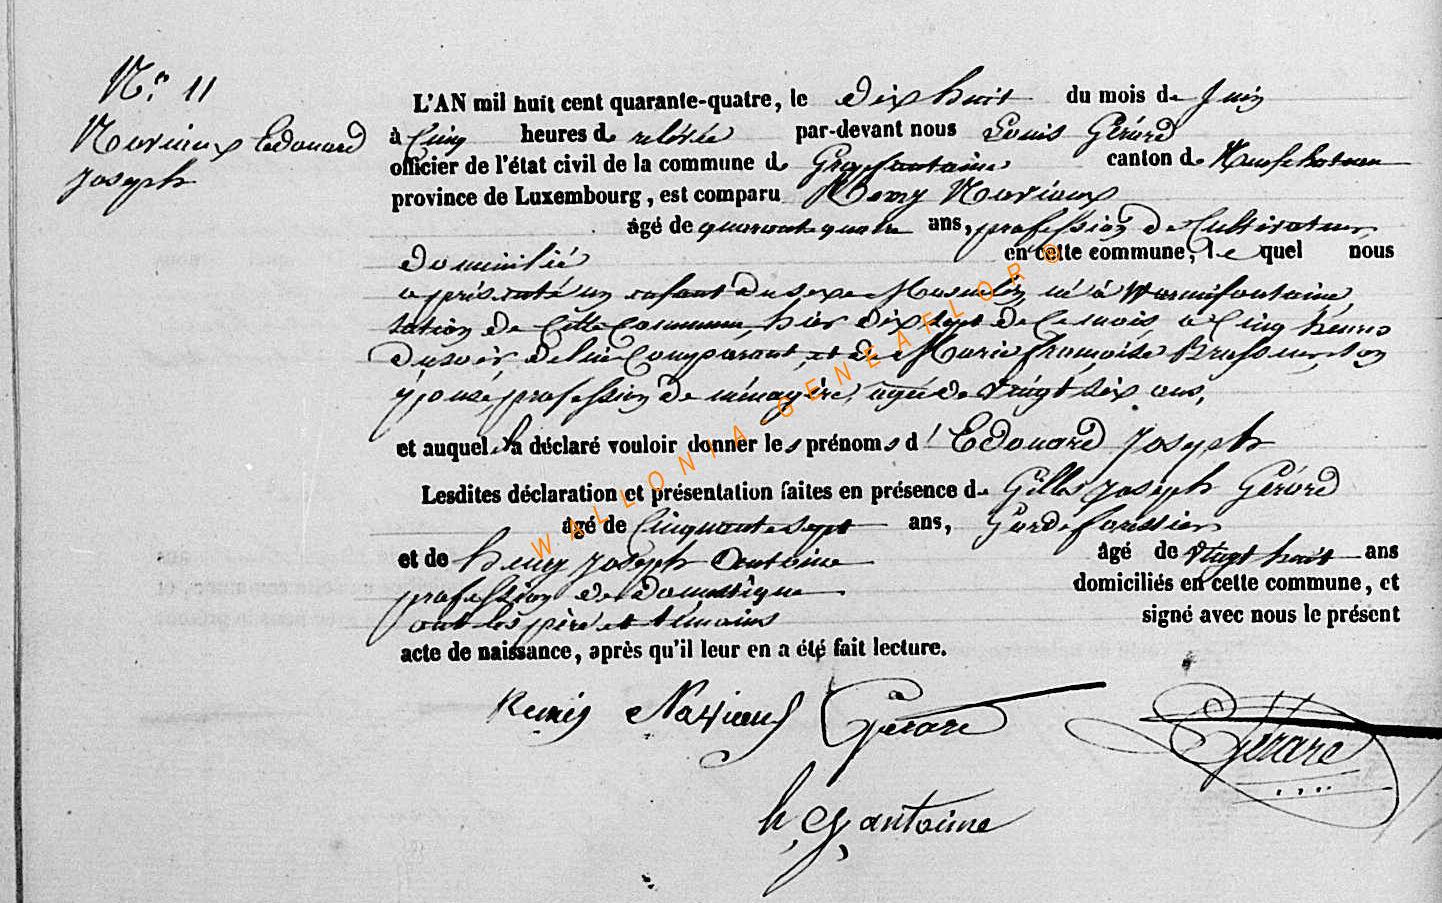 N.° 11
Naviaux Edouard
Joseph
L'AN mil huit cent quarante-quatre, le dix huit du mois de Juin
à cinq heures de relévée par-devant nous Louis Gérard
officier de l'état civil de la commune de Grapfontaine canton de Neufchateau
province de Luxembourg, est comparu Remy Naviaux
âgé de quarante quatre ans, profession de Cultivateur
domicilié en cette commune, le quel nous
a présenté un enfant du sexe Masculin né à Warmifontaine,
section de cette Commune, hier dix sept de ce mois à Cinq heures
du soir de lui Comparant, et de Marie françoise Brasseur, son
épouse, profession de ménagère, agée de vingt six ans,
et auquel il a déclaré vouloir donner les prénoms d' Edouard Joseph
Lesdites déclaration et présentation faites en présence de Gilles Joseph Gérard
âgé de Cinquante sept ans, Garde forestier
et de henry Joseph Antoine âgé de vingt huit ans
profession de domestique domiciliés en cette commune, et
ont les père et témoins signé avec nous le présent
acte de naissance, après qu'il leur en a été fait lecture.
Remis Naviaux Gérard Gérard
h, J, antoine
WALLONIA-GENEAFLOR©